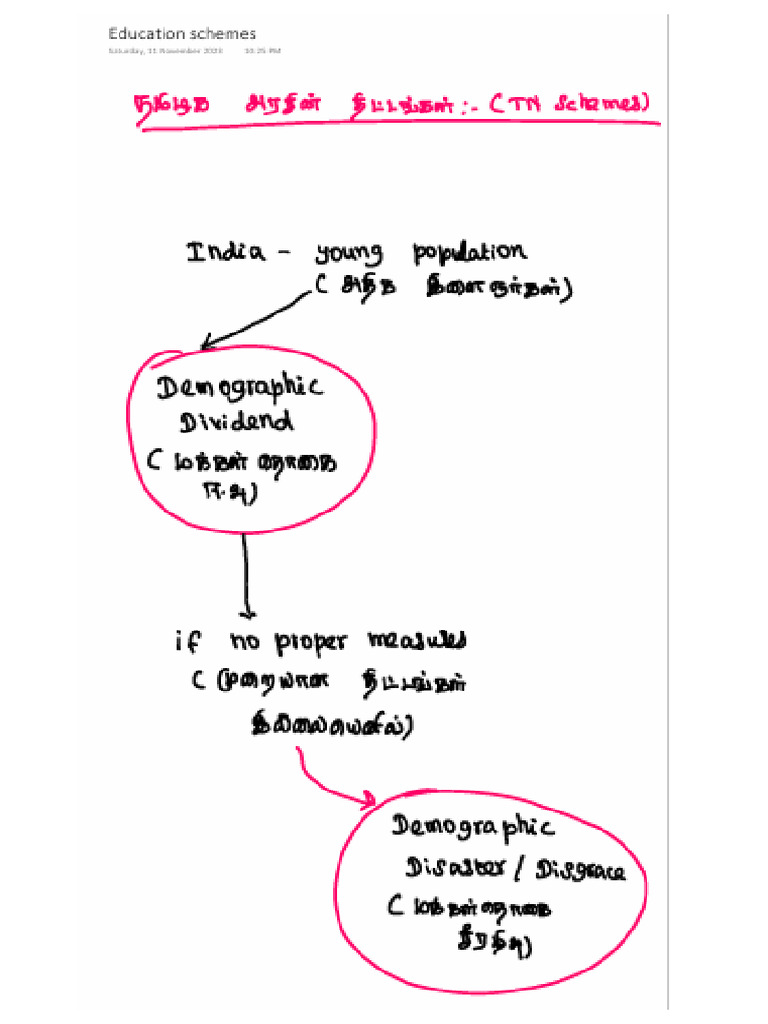 Education schemes
Saturday, 11 November 2023 10:25 PM
தமிழக அரசின் திட்டங்கள் :- (TN Schemes)
India - young population
(அதிக இளைஞர்கள்)
Demographic
Dividend
(மக்கள் தொகை
if no proper measures
(முறையான திட்டங்கள்
இல்லையெனில்)
Demographic
Disaster / Disgrace
(மக்கள்தொகை